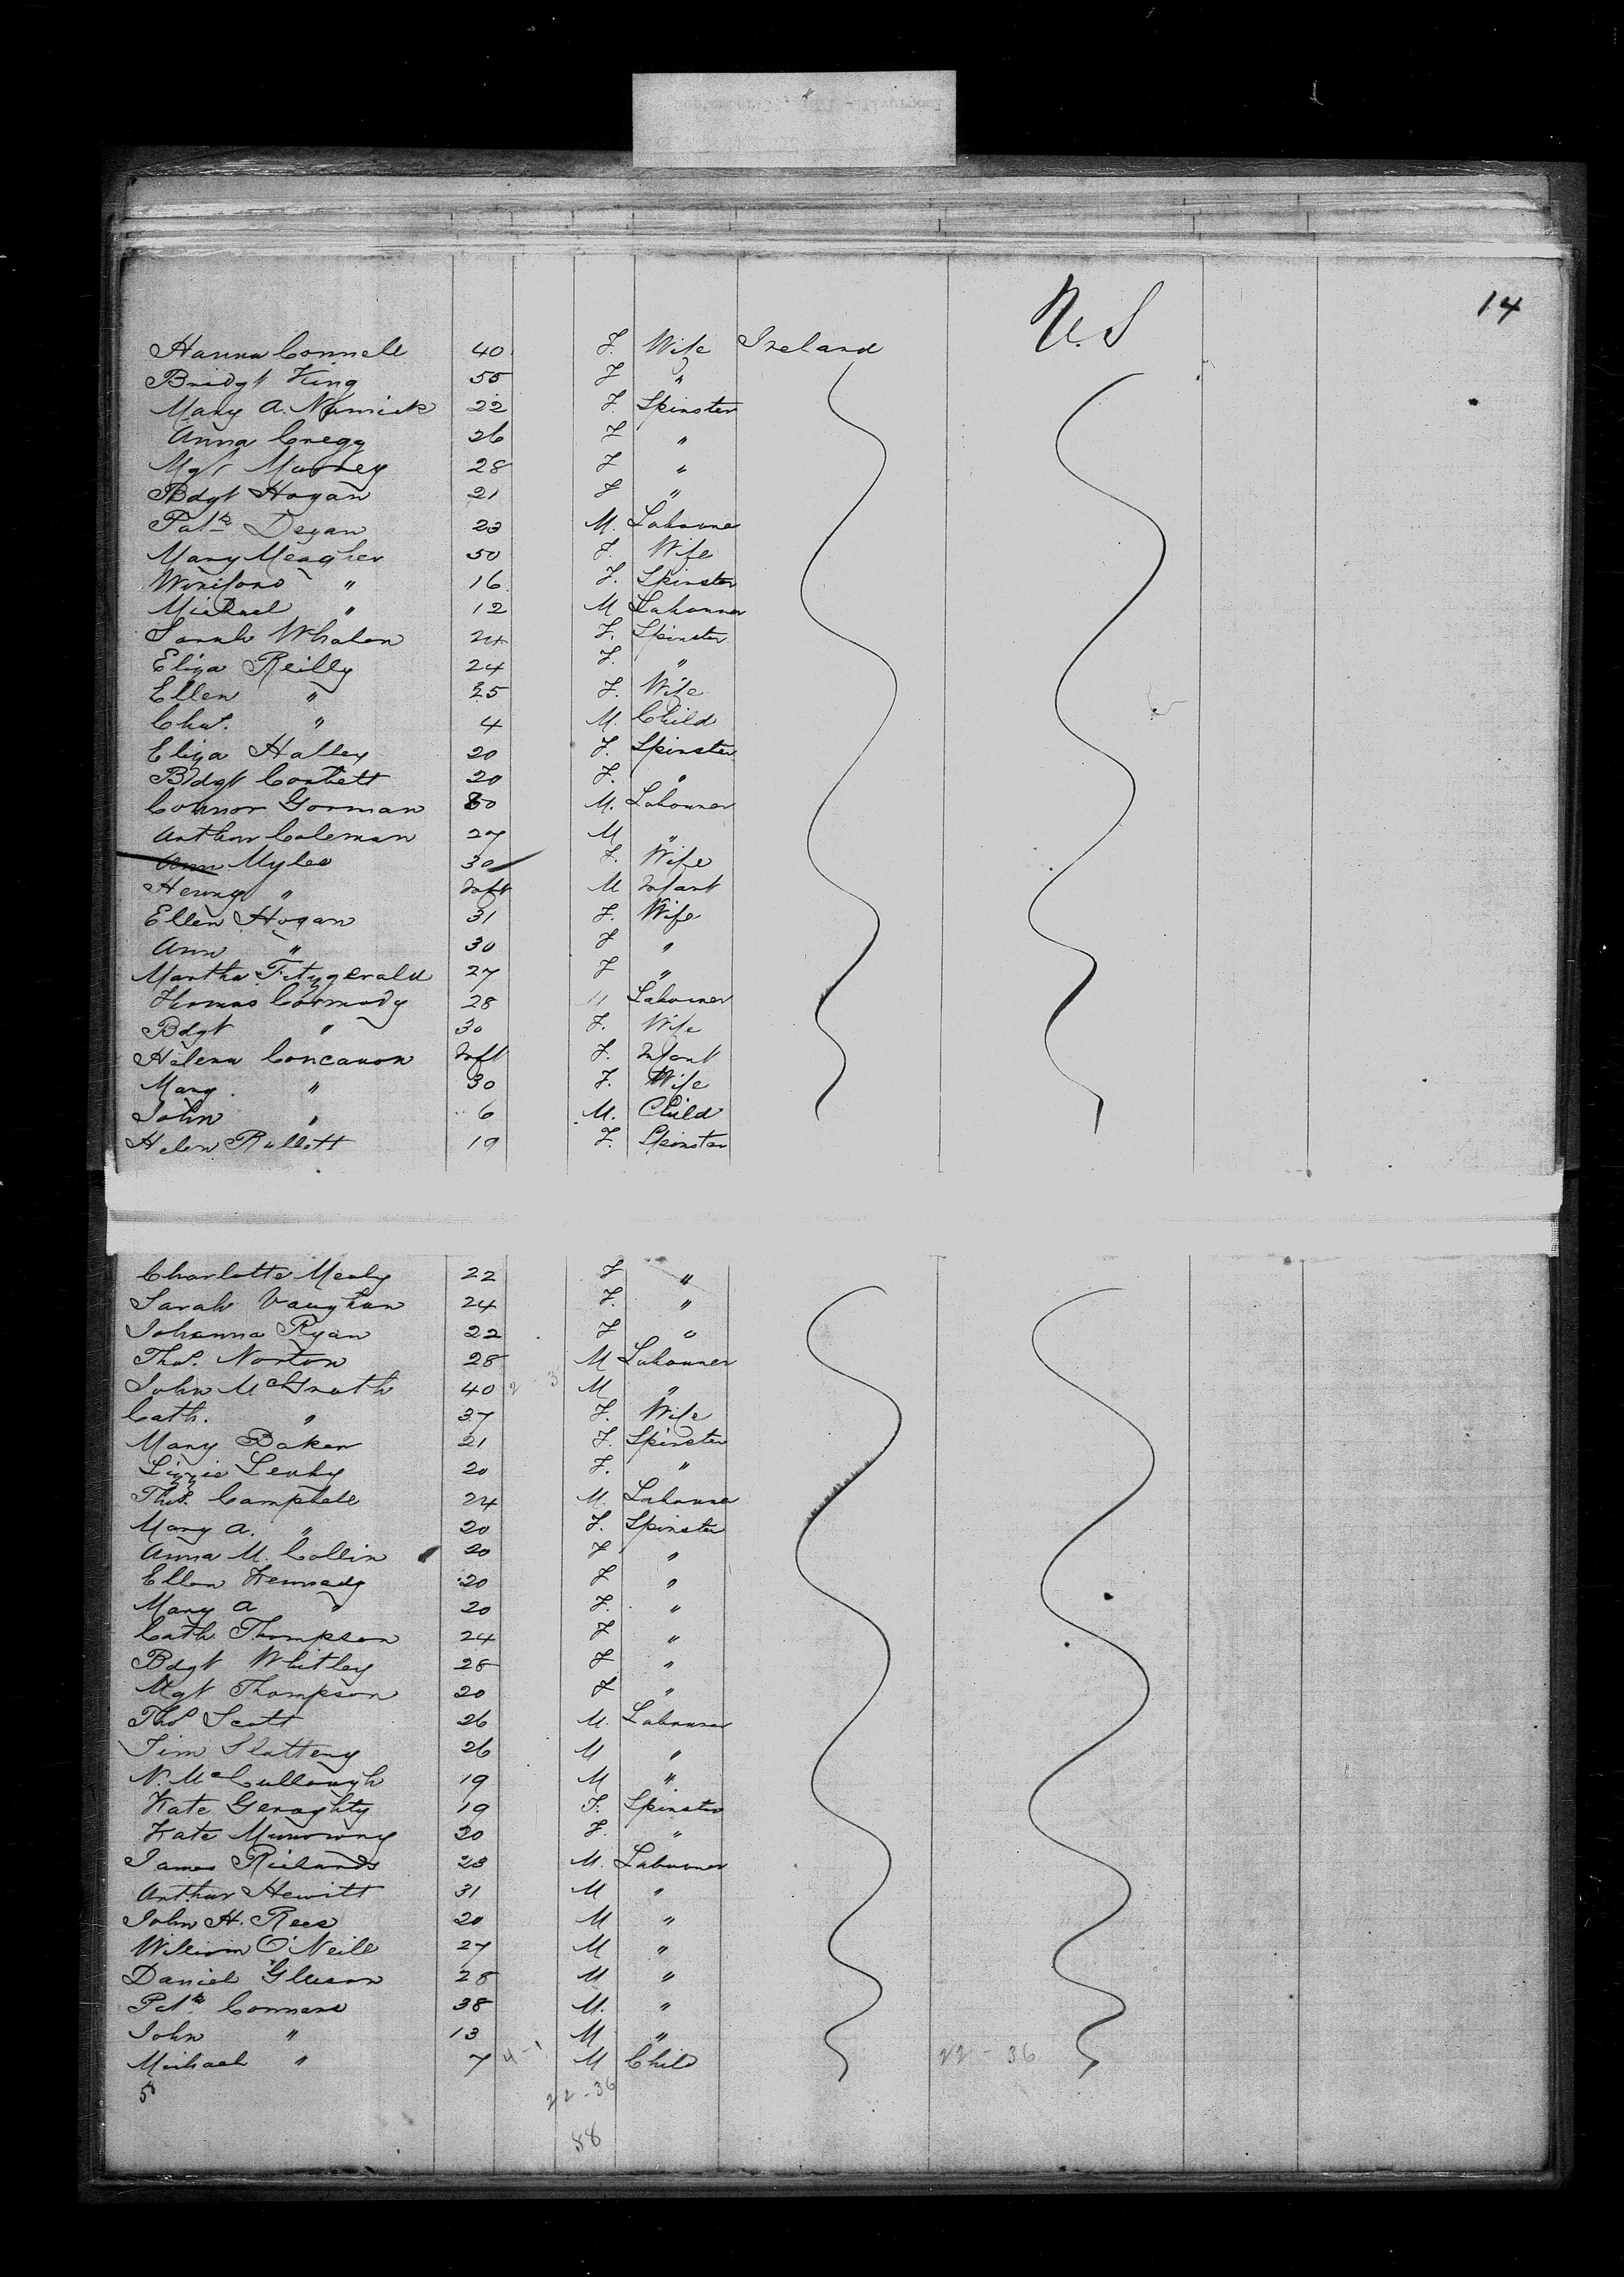 14
U.S
Hanna Connell 40 F. Wife Ireland
Bridgt King 55 F "
Mary A. 22 F. Spinster
Anna Cregg 26 F "
Mgt 28 F "
Bdgt Hogan 21 F "
Patk Degan 23 M. Labourer
Mary Meagher 50 F. Wife
Winiford " 16 F. Spinster
Michael " 12 M Labourer
Sarah Whalen 24 F. Spinster
Eliza Reilly 24 F. "
Ellen " 25 F. Wife
Chas. " 4 M. Child
Eliza Halley 20 F. Spinster
Bdgt Corbett 20 F. "
Connor Gorman M. Labourer
Arthur Coleman 27 M "
Ann Myles 30 F. Wife
Henry " Inft M Infant
Ellen Hogan 31 F. Wife
Ann " 30 F "
Martha Fitzgerald 27 F "
Thomas Cormody 28 " Labourer
Bdgt " 30 F. Wife
Helena Concanon Inft F. Infant
Mary " 30 F. Wife
John " 6 M. Child
Helen 19 F. Spinster
Charlotte Mealy 22 F "
Sarah Vaughan 24 F. "
Johanna Ryan 22 F "
Thos. Norton 28 M Labourer
John McGrath 40 M "
Cath. " 37 F. Wife
Mary Baker 21 F. Spinster
Lizzie Leahy 20 F. "
Thos. Campbell 24 M. Labourer
Mary A. " 20 F. Spinster
Anna M. Collin 20 F "
Ellen Kennedy 20 F "
Mary A " 20 F. "
Cath Thompson 24 F "
Bdgt Whitley 28 F "
Mgt Thompson 20 F "
Thos Scott 26 M. Labourer
Tim Slattery 26 M "
N. McCullough 19 M "
Kate Geraghty 19 F. Spinster
Kate 20 F. "
James Richards 23 M. Labourer
Arthur Hewitt 31 M "
John H. Rees 20 M "
William O'Neill 27 M "
Daniel Gleeson 28 M "
Patk Conners 38 M. "
John " 13 M "
Michael " 7 4-1 M Child 22-36
5
22-36
58